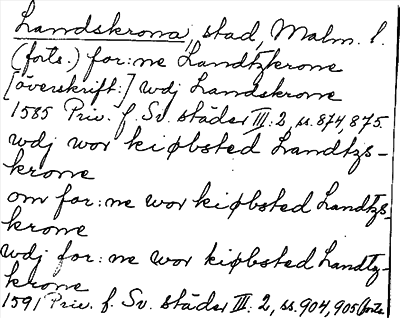 Landskrona, stad, Malm. l.
(forts.) for:ne Landtzkrone
[överskrift:] wdj Landskrone
1585 Priv. f. Sv. städer III: 2, s. 874, 875.
wdj wor kiøbsted Landtzs-
krone
om for:ne wor kiøbsted Landtzs-
krone
wdj for:ne wor kiøbsted Landtz-
krone
1591 Priv. f. Sv. städer III: 2, ss. 904, 905 (forts